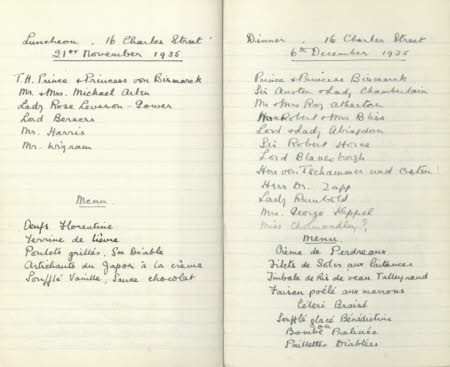 Luncheon . 16 Charles Street
21st November 1935
T.H. Prince & Princess von Bismarck
Mr. & Mrs. Michael Arlen
Lady Rose Leveson-Gower
Lord Berners
Mr. Harris
Mr. Wigram
Menu
Oeufs Florentine
Terrine de lièvre
Poulets grillés, Sce Diable
Artichauts du Japon à la crème
Soufflé Vanille, Sauce chocolat
Dinner . 16 Charles Street
6th December 1935
Prince & Princess Bismarck
Sir Austen & Lady Chamberlain
Mr & Mrs Ray Atherton
Robert & Mrs Bliss
Lord & Lady Abingdon
Sir Robert Horne
Lord Blanesburgh
Herr von Tschammer und Osten
Herr Dr. Zapp
Lady Rumbold
Mrs. George Keppel
Miss Cholmondley?
Menu
Crème de Perdreaux
Filets de Soles aux
Timbale de Ris de veau Talleyrand
Faisan poêlé aux marrons
Céleri Braisé
Soufflé glacé Bénédictine
ou
Bombe Pralinée
Paillettes Diablées